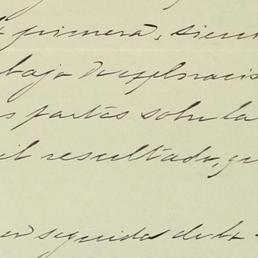 primera, sien
bajo de exploracio
s partes sobre la
il resultado, qu
seguida de la